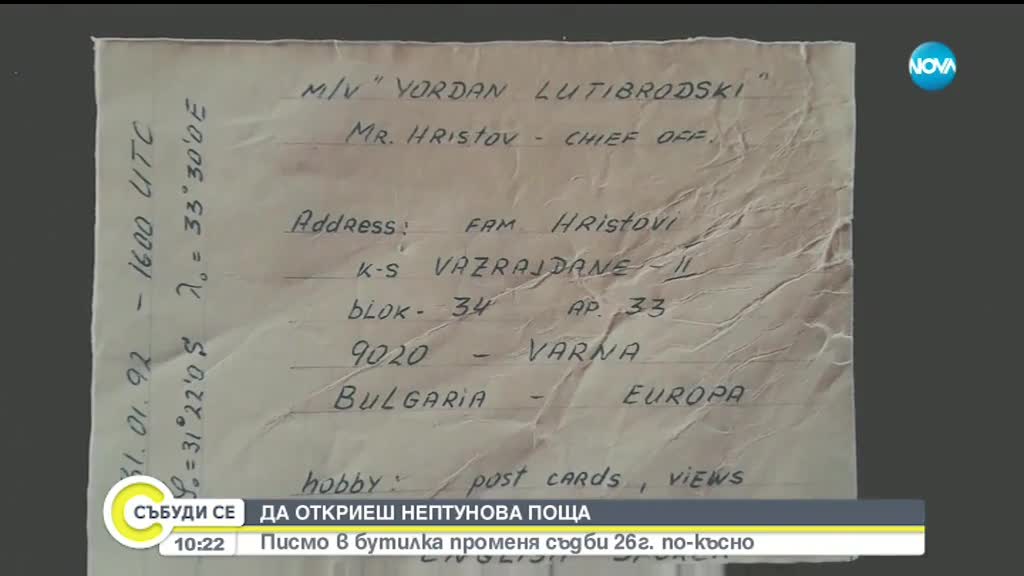 m/v "YORDAN LUTIBRODSKI"
MR. HRISTOV - CHIEF OFF.
Address: FAM HRISTOVI
K-S VAZRAJDANE - II
BLOK - 34 AP. 33
9020 - VARNA
BULGARIA - EUROPA
hobby: post CARDS, VIEWS
31.01.92 - 1600 UTC
φ₀ = 31°22'0 S λ₀ = 33°30'0 E
NOVA
СЪБУДИ СЕ
10:22
ДА ОТКРИЕШ НЕПТУНОВА ПОЩА
Писмо в бутилка променя съдби 26г. по-късно